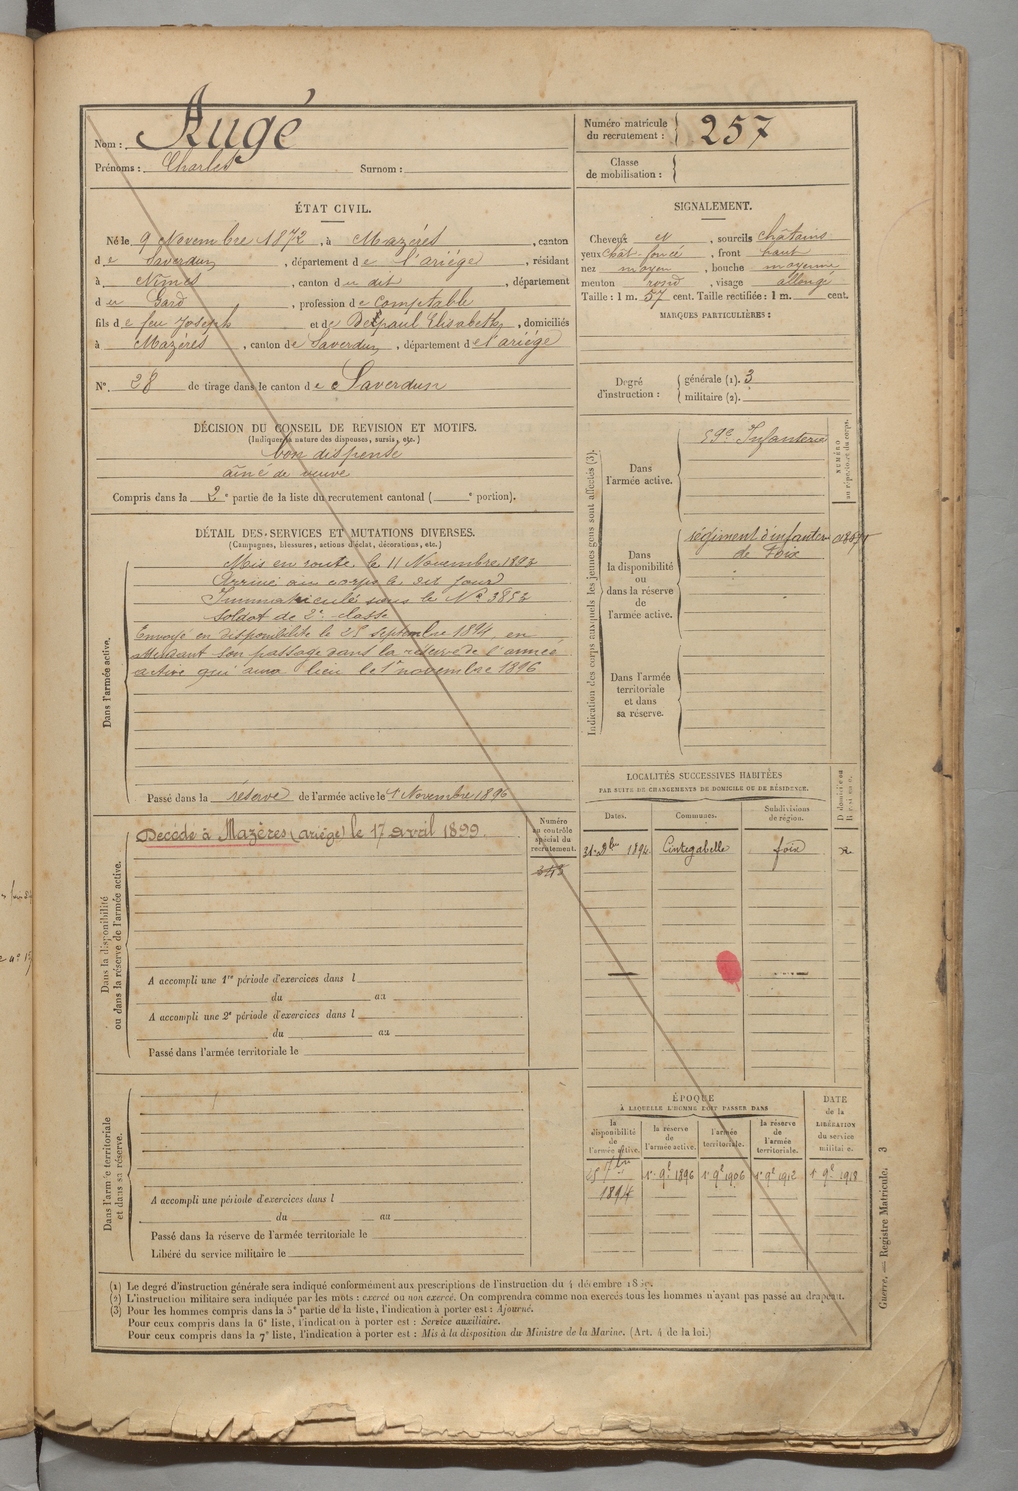 Nom : Augé
Prénoms : Charles Surnom :
Numéro matricule du recrutement : 257
Classe de mobilisation :
ÉTAT CIVIL.
Né le 9 Novembre 1872, à Mazères, canton
de Saverdun, département de l'ariège, résidant
à Nîmes, canton du dit, département
du Gard, profession de Comptable
fils de feu Joseph et de Delpaul Elisabeth, domiciliés
à Mazères, canton de Saverdun, département de l'ariège
N° 28 de tirage dans le canton de Saverdun
SIGNALEMENT.
Cheveux et, sourcils châtains
yeux chât. foncé, front haut
nez moyen, bouche moyenne
menton rond, visage allongé
Taille : 1 m. 57 cent. Taille rectifiée : 1 m. cent.
MARQUES PARTICULIÈRES :
Degré d'instruction : générale (1). 3
militaire (2).
DÉCISION DU CONSEIL DE REVISION ET MOTIFS.
(Indiquer la nature des dispenses, sursis, etc.)
bon dispensé
aîné de veuve
Compris dans la 2e partie de la liste du recrutement cantonal ( e portion).
DÉTAIL DES SERVICES ET MUTATIONS DIVERSES.
(Campagnes, blessures, actions d'éclat, décorations, etc.)
Dans l'armée active.
Mis en route le 11 Novembre 1893
Arrivé au corps le dit jour
Immatriculé sous le N° 3853
soldat de 2e classe
Envoyé en disponibilité le 25 septembre 1894, en
attendant son passage dans la réserve de l'armée
active qui aura lieu le 1er novembre 1896
Passé dans la réserve de l'armée active le 1 Novembre 1896
Indication des corps auxquels les jeunes gens sont affectés (3).
NUMÉRO au répertoire du corps.
Dans l'armée active.
59e Infanterie
Dans la disponibilité ou dans la réserve de l'armée active.
régiment d'infanterie
de Foix
Dans l'armée territoriale et dans sa réserve.
Dans la disponibilité ou dans la réserve de l'armée active.
Décédé à Mazères (ariège) le 17 avril 1899.
Numéro au contrôle spécial du recrutement.
343
A accompli une 1re période d'exercices dans l
du au
A accompli une 2e période d'exercices dans l
du au
Passé dans l'armée territoriale le
LOCALITÉS SUCCESSIVES HABITÉES
PAR SUITE DE CHANGEMENTS DE DOMICILE OU DE RÉSIDENCE.
Dates. Communes. Subdivisions de région. D domicile ou R résidence.
31 Xbre 1894 Cintegabelle foix R
Dans l'armée territoriale et dans sa réserve.
A accompli une période d'exercices dans l
du au
Passé dans la réserve de l'armée territoriale le
Libéré du service militaire le
ÉPOQUE
À LAQUELLE L'HOMME DOIT PASSER DANS
la disponibilité de l'armée active.
la réserve de l'armée active.
l'armée territoriale.
la réserve de l'armée territoriale.
DATE de la LIBÉRATION du service militaire.
25 7bre 1894 1er 9bre 1896 1er 9bre 1906 1er 9bre 1912 1er 9bre 1918
(1) Le degré d'instruction générale sera indiqué conformément aux prescriptions de l'instruction du 4 décembre 1889.
(2) L'instruction militaire sera indiquée par les mots : exercé ou non exercé. On comprendra comme non exercés tous les hommes n'ayant pas passé au drapeau.
(3) Pour les hommes compris dans la 5e partie de la liste, l'indication à porter est : Ajourné.
Pour ceux compris dans la 6e liste, l'indication à porter est : Service auxiliaire.
Pour ceux compris dans la 7e liste, l'indication à porter est : Mis à la disposition du Ministre de la Marine. (Art. 4 de la loi.)
Guerre. — Registre Matricule. 3